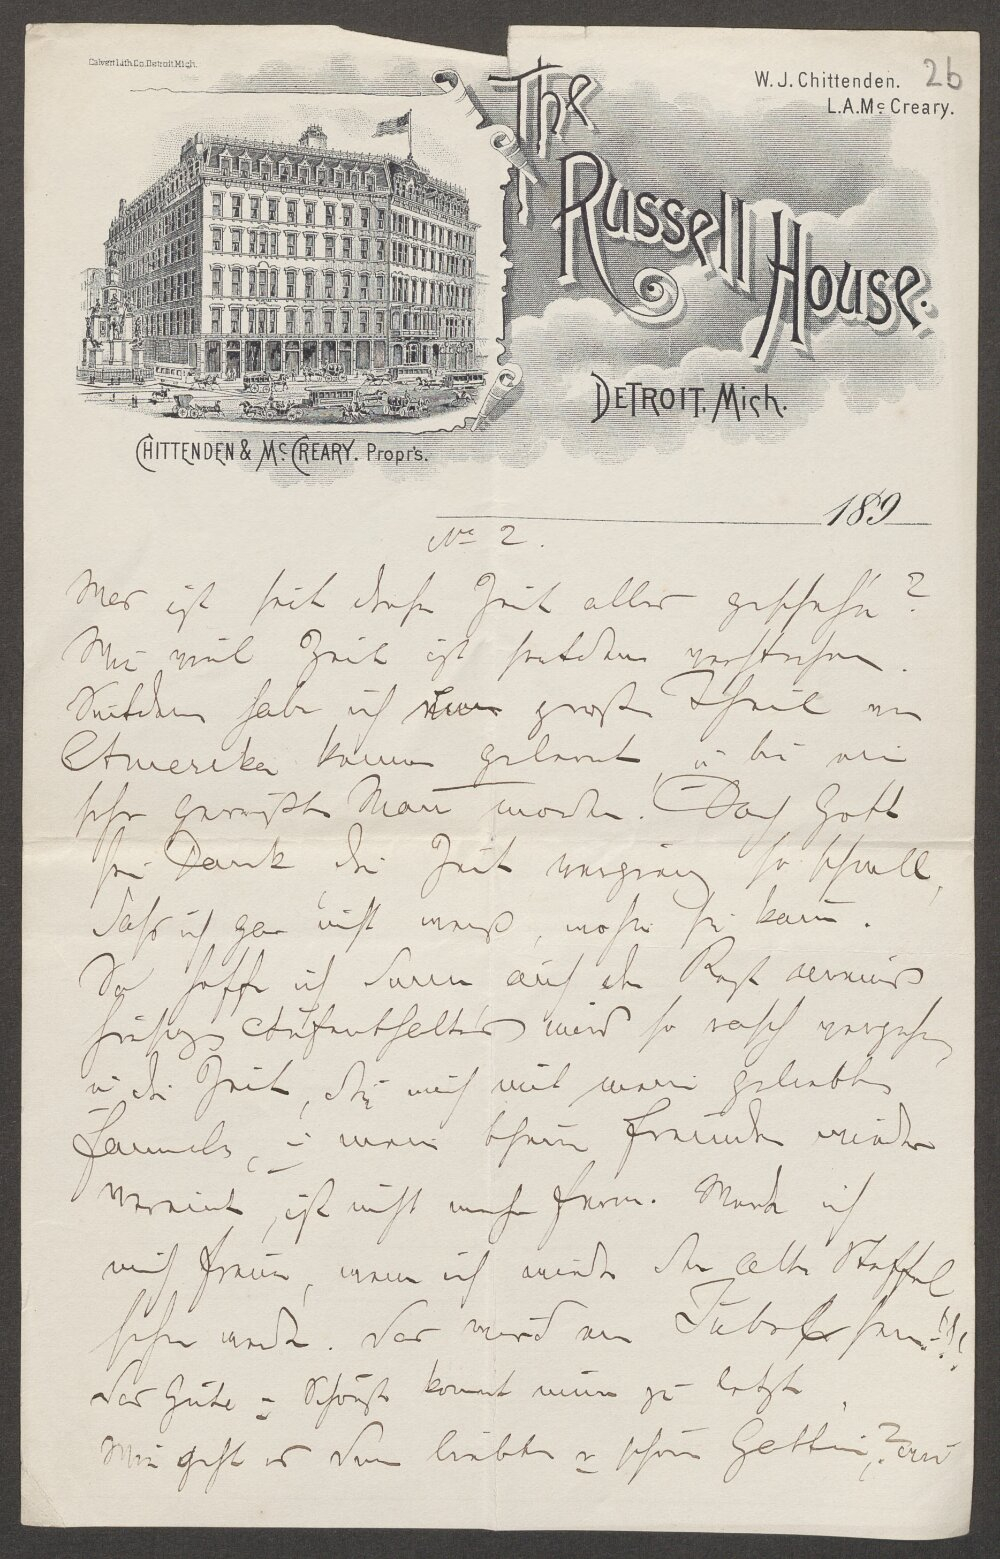 Calvert Lith. Co. Detroit Mich.
26
W. J. Chittenden.
L. A. Mc Creary.
The
Russell
House.
Detroit, Mich.
Chittenden & Mc Creary. Propr's.
189
No 2.
Was ist seit dieser Zeit alles geschehen?
Wie viel Zeit ist seitdem verstrichen.
Seitdem habe ich einen großen Theil von
Amerika kennen gelernt, u bin ein
sehr gereister Mann worden. Doch Gott
sei Dank die Zeit verging so schnell,
dass ich gar nicht weiß, wohin sie kam.
So hoffe ich denn auch der Rest meines
hiesigen Aufenthaltes wird so rasch vergehen,
u die Zeit, die mich mit meiner geliebten
Familie, u meinen Freunden wieder
vereint, ist nicht mehr fern. Werde ich
mich freuen, wenn ich wieder den alten
sehen werde. Das wird ein Jubel sein!!!
Das Gute u Schönste kommt immer zu letzt.
Wie geht es Deiner lieben u schönen Gattin?